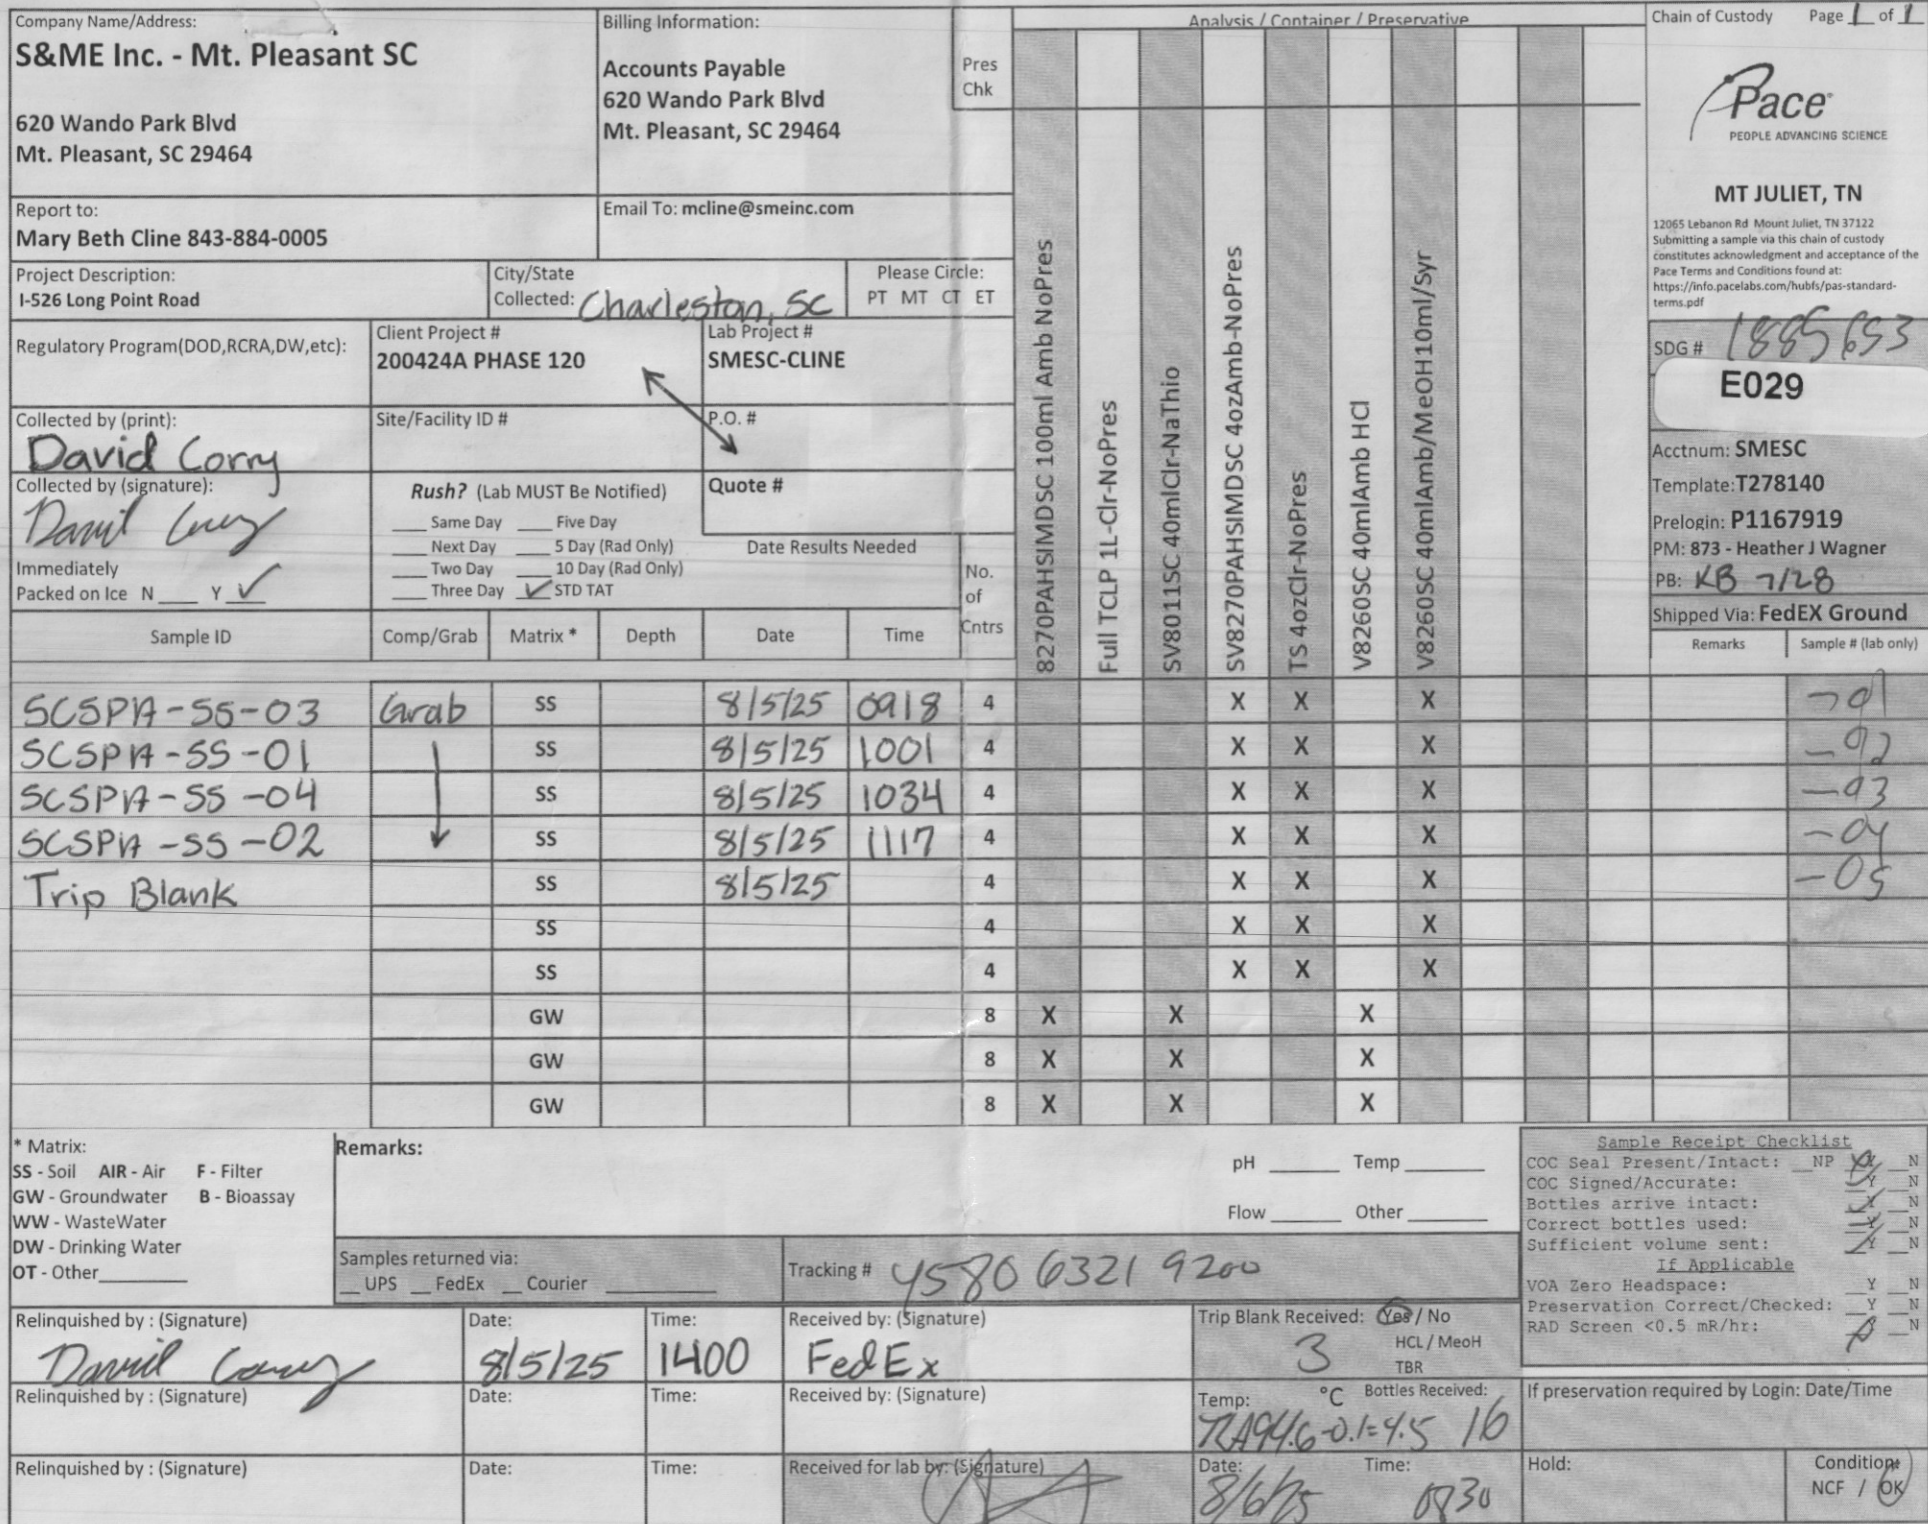 Company Name/Address:
S&ME Inc. - Mt. Pleasant SC
620 Wando Park Blvd
Mt. Pleasant, SC 29464
Billing Information:
Accounts Payable
620 Wando Park Blvd
Mt. Pleasant, SC 29464
Pres
Chk
Analysis / Container / Preservative
Chain of Custody Page 1 of 1
Pace
PEOPLE ADVANCING SCIENCE
MT JULIET, TN
12065 Lebanon Rd Mount Juliet, TN 37122
Submitting a sample via this chain of custody
constitutes acknowledgment and acceptance of the
Pace Terms and Conditions found at:
https://info.pacelabs.com/hubfs/pas-standard-
terms.pdf
Report to:
Mary Beth Cline 843-884-0005
Email To: mcline@smeinc.com
Project Description:
I-526 Long Point Road
City/State
Collected: Charleston, SC
Please Circle:
PT MT CT ET
Regulatory Program(DOD,RCRA,DW,etc):
Client Project #
200424A PHASE 120
Lab Project #
SMESC-CLINE
Collected by (print):
David Corry
Site/Facility ID #
P.O. #
Collected by (signature):
David Corry
Rush? (Lab MUST Be Notified)
Same Day Five Day
Next Day 5 Day (Rad Only)
Two Day 10 Day (Rad Only)
Three Day ✓ STD TAT
Quote #
Date Results Needed
Immediately
Packed on Ice N Y ✓
No.
of
Cntrs
8270PAHSIMDSC 100ml Amb NoPres
Full TCLP 1L-Clr-NoPres
SV8011SC 40mlClr-NaThio
SV8270PAHSIMDSC 4ozAmb-NoPres
TS 4ozClr-NoPres
V8260SC 40mlAmb HCl
V8260SC 40mlAmb/MeOH10ml/Syr
SDG # 1885653
E029
Acctnum: SMESC
Template:T278140
Prelogin: P1167919
PM: 873 - Heather J Wagner
PB: KB 7/28
Shipped Via: FedEX Ground
Sample ID Comp/Grab Matrix * Depth Date Time Remarks Sample # (lab only)
SCSPA-SS-03 Grab SS 8/5/25 0918 4 X X X -01
SCSPA-SS-01 SS 8/5/25 1001 4 X X X -02
SCSPA-SS-04 SS 8/5/25 1034 4 X X X -03
SCSPA-SS-02 SS 8/5/25 1117 4 X X X -04
Trip Blank SS 8/5/25 4 X X X -05
SS 4 X X X
SS 4 X X X
GW 8 X X X
GW 8 X X X
GW 8 X X X
* Matrix:
SS - Soil AIR - Air F - Filter
GW - Groundwater B - Bioassay
WW - WasteWater
DW - Drinking Water
OT - Other
Remarks:
pH Temp
Flow Other
Samples returned via:
UPS FedEx Courier
Tracking # 4580 6321 9200
Sample Receipt Checklist
COC Seal Present/Intact: NP Y N
COC Signed/Accurate: Y N
Bottles arrive intact: Y N
Correct bottles used: Y N
Sufficient volume sent: Y N
If Applicable
VOA Zero Headspace: Y N
Preservation Correct/Checked: Y N
RAD Screen <0.5 mR/hr: Y N
Relinquished by : (Signature)
David Corry
Date:
8/5/25
Time:
1400
Received by: (Signature)
FedEx
Trip Blank Received: Yes / No
3
HCL / MeoH
TBR
Relinquished by : (Signature)
Date:
Time:
Received by: (Signature)
Temp: °C Bottles Received:
4.6-0.1=4.5 16
If preservation required by Login: Date/Time
Relinquished by : (Signature)
Date:
Time:
Received for lab by: (Signature)
Date:
8/6/25
Time:
0830
Hold:
Condition:
NCF / OK